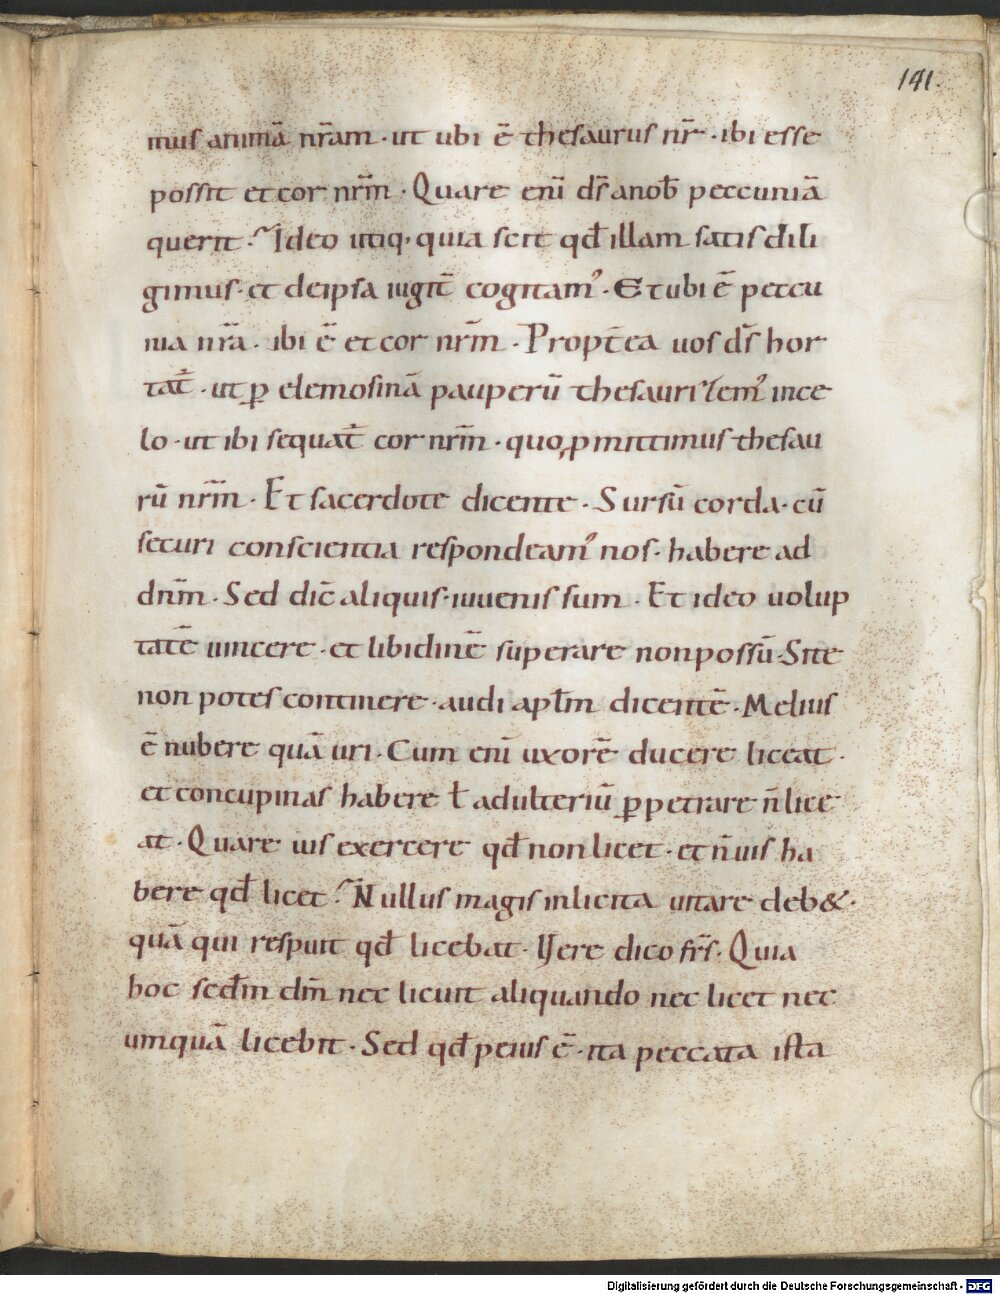 141.
mus animā nr̄am · ut ubi ē thesaurus nr̄ · ibi esse
possit et cor nr̄m · Quare enī ds̄ a nob̄ peccuniā
querit · Ideo utiq; quia scit qd̄ illam satis dili
gimus · et de ipsa iugit̄ cogitam᾿ · Et ubi ē peccu
nia nr̄a · ibi ē et cor nr̄m · Propt̄ea uos ds̄ hor
tat̄ · ut ꝑ elemosinā pauperū thesaurisem᾿ in ce
lo · ut ibi sequat̄ cor nr̄m · quo p̱mittimus thesau
rū nr̄m · Et sacerdote dicente · Sursū corda · cū
securi conscientia respondeam᾿ nos · habere ad
dn̄m · Sed dic̄ aliquis · iuuenis sum · Et ideo uolup
tatē uincere · et libidinē superare non possū · Si te
non potes continere · audi apl̄m dicentē · Melius
ē nubere quā uri · Cum enī uxorē ducere liceat ·
et concupinas habere ł adulteriū ꝑpetrare n̄ lice
at · Quare uis exercere qd̄ non licet · et n̄ uis ha
bere qd̄ licet · Nullus magis inlicita uitare deb& ·
quā qui respuit qd̄ licebat · Uere dico frs̄ · Quia
hoc scd̄m dm̄ nec licuit aliquando nec licet nec
umquā licebit · Sed qd̄ peius ē · ita peccata ista
Digitalisierung gefördert durch die Deutsche Forschungsgemeinschaft - DFG